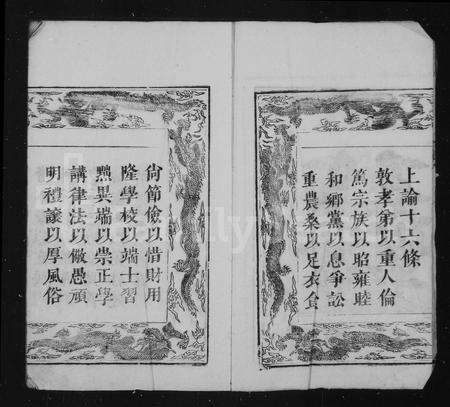 上諭十六條
敦孝弟以重人倫
篤宗族以昭雍睦
和鄉黨以息爭訟
重農桑以足衣食
尙節儉以惜財用
隆學校以端士習
黜異端以崇正學
講律法以儆愚頑
明禮讓以厚風俗